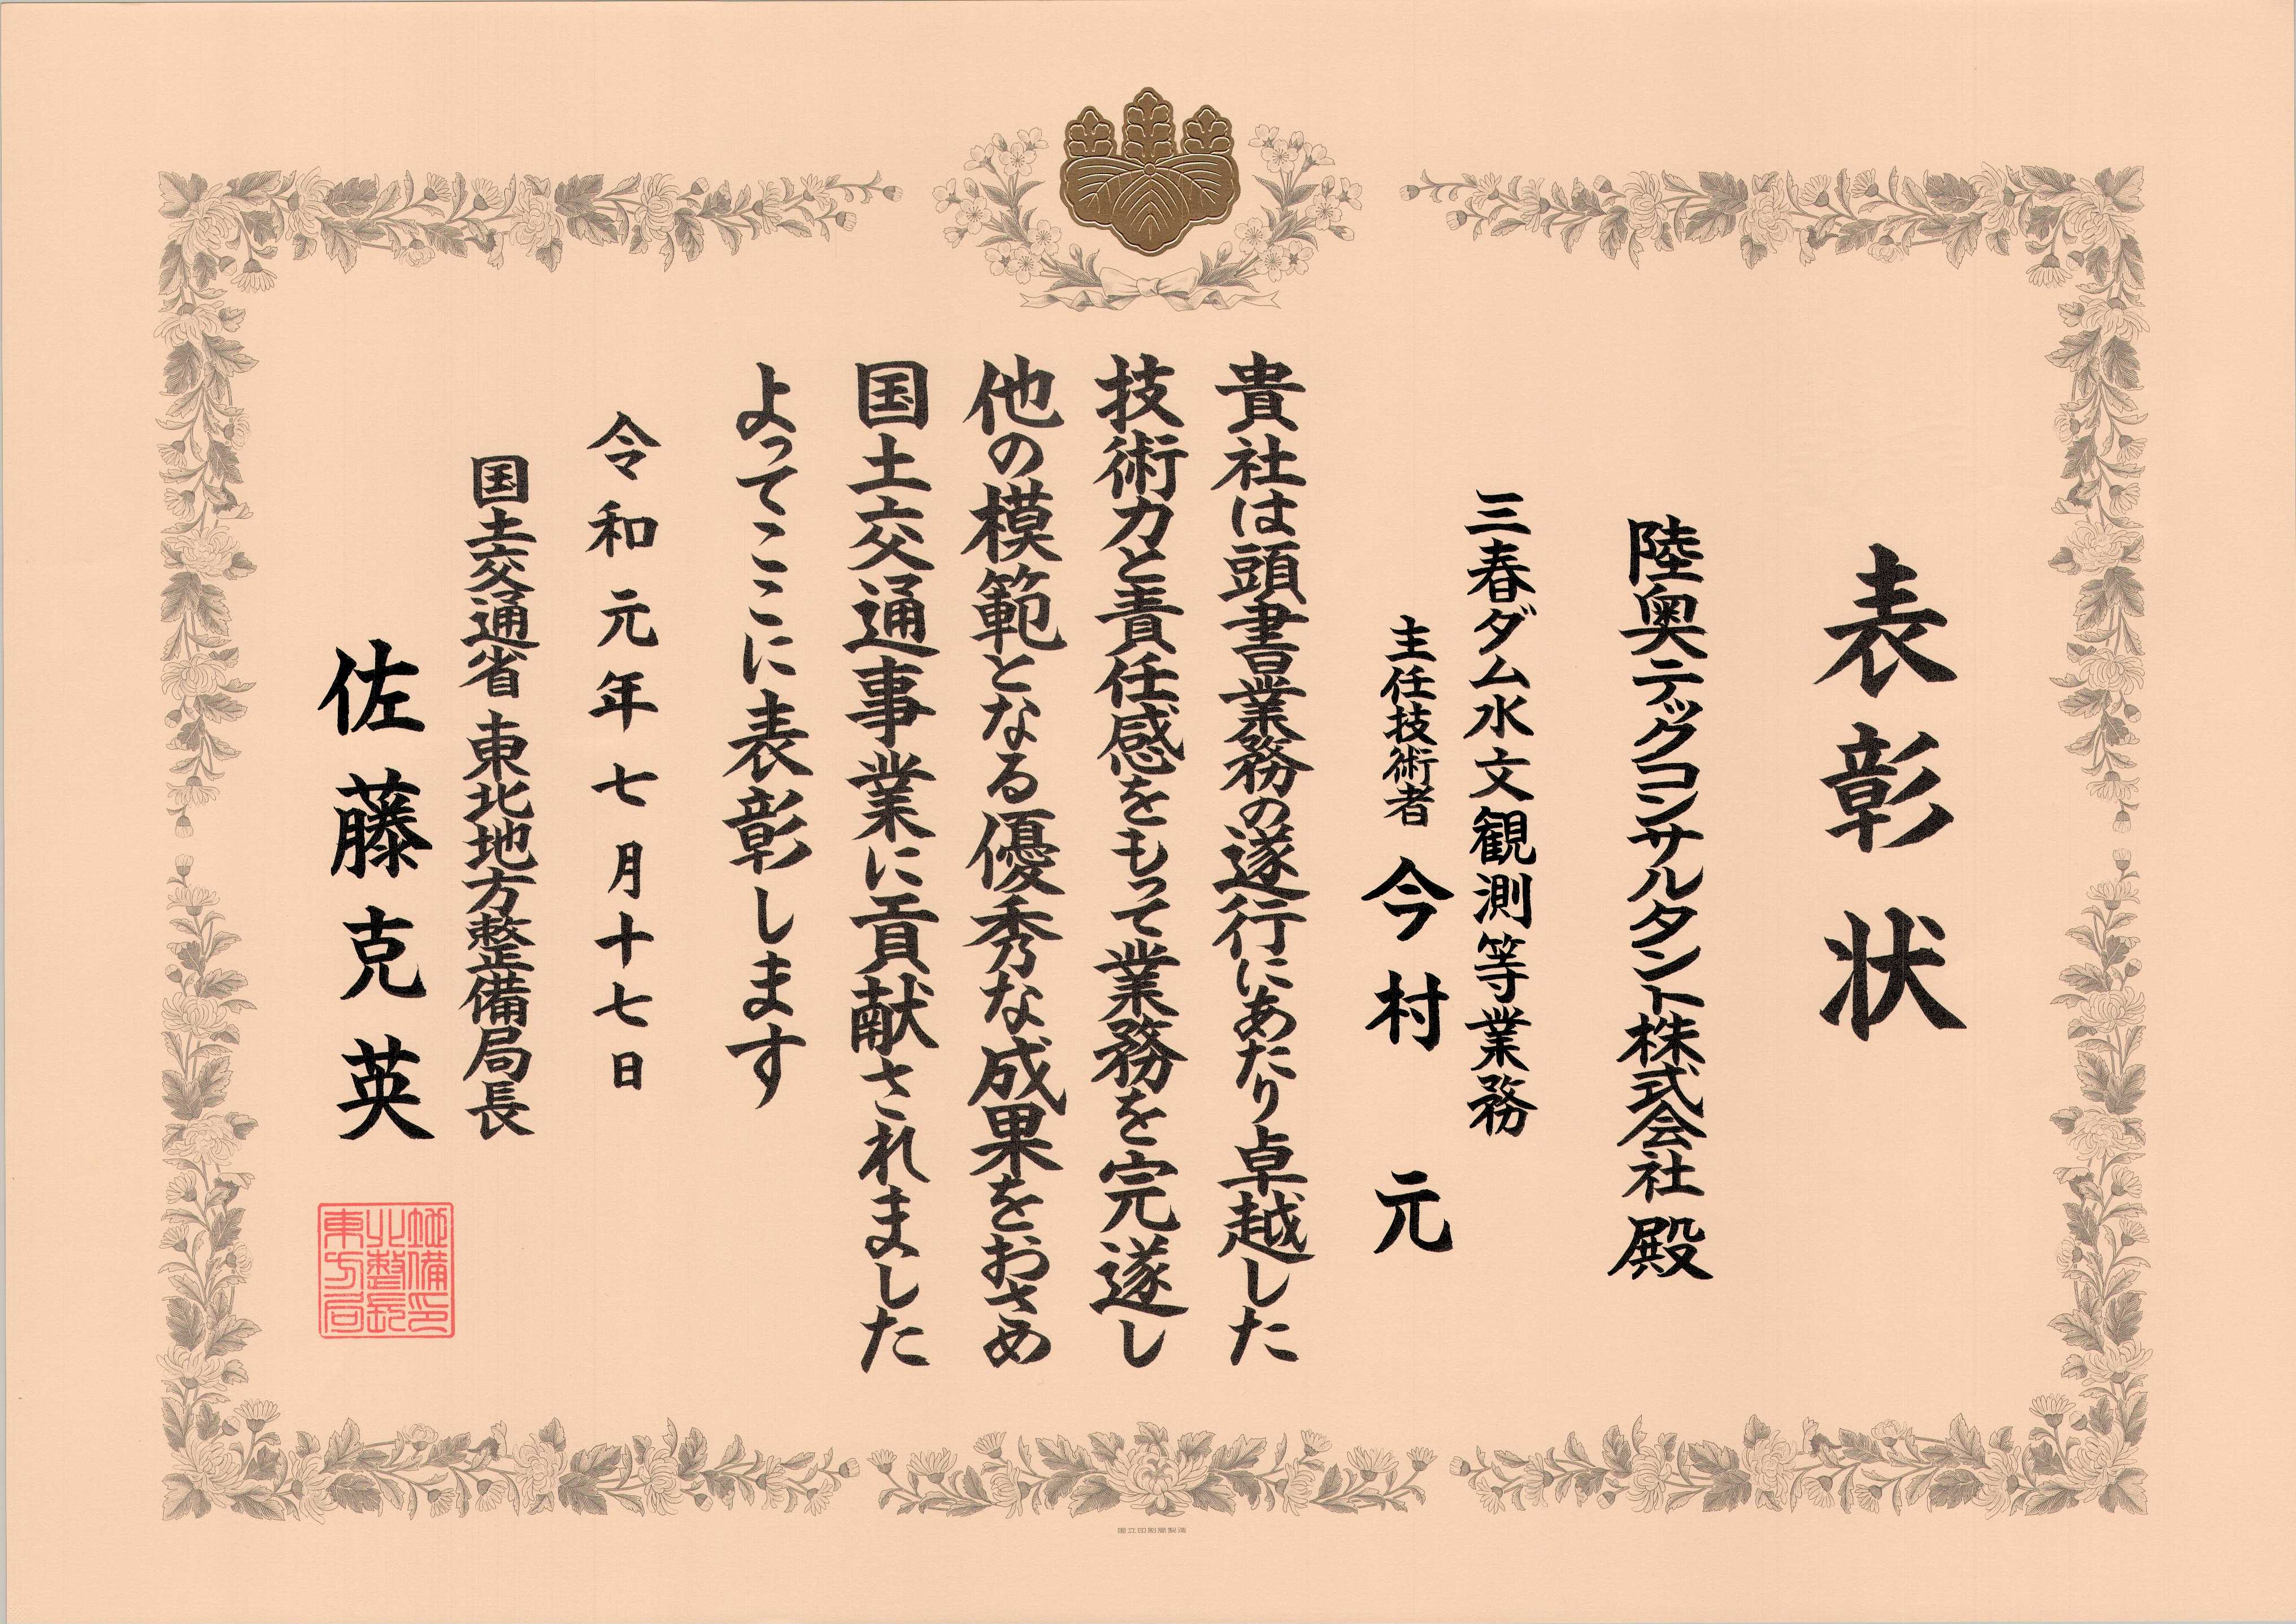 表彰状
陸奥テックコンサルタント株式会社 殿
三春ダム水文観測等業務
主任技術者 今村 元
貴社は頭書業務の遂行にあたり卓越した
技術力と責任感をもって業務を完遂し
他の模範となる優秀な成果をおさめ
国土交通事業に貢献されました
よってここに表彰します
令和元年七月十七日
国土交通省 東北地方整備局長
佐藤克英
国立印刷局製造